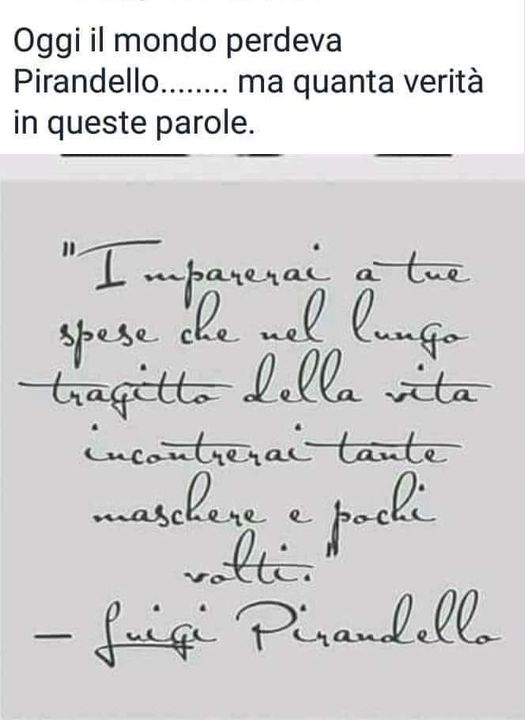 Oggi il mondo perdeva
Pirandello........ ma quanta verità
in queste parole.
"Imparerai a tue
spese che nel lungo
tragitto della vita
incontrerai tante
maschere e pochi
volti."
- Luigi Pirandello